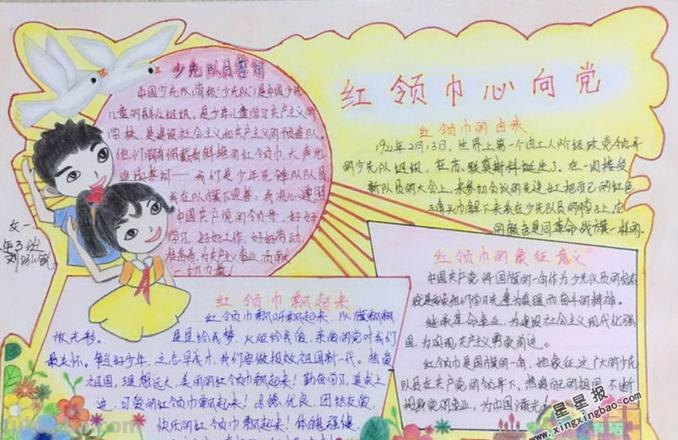 红领巾心向党
少先队员誓词
中国少先队(简称"少先队")是中国少年
儿童的群众组织,是少年儿童学习共产主义的
学校,是建设社会主义和共产主义的预备队
我们是少年先锋队队员
我在队旗下宣誓:我决心遵照
中国共产党的领导,好好
学习,好好工作,好好劳动,
准备着,为共产主义事业,贡献
一切力量!
红领巾的由来
1922年2月13日,世界上第一个由工人阶级政党领导
的少先队组织,在苏联莫斯科诞生了。在一次接受
新队员的大会上,来参加会议的先进女工把自己的红色
三角头巾解下来系在少先队员的脖子上,它
的颜色是同革命战旗一样的。
红领巾的象征意义
中国共产党将国旗的一角作为少先队员的标志
就是要教他们学习先辈为真理而奋斗的精神。
继承革命事业,为建设社会主义现代化强
国,为实现共产主义勇敢前进。
红领巾是国旗的一角,他象征这广大的少先
队员在共产党的领导下,热爱自己的祖国,不断
红领巾飘起来
红领巾飘呀飘起来,队旗飘飘
放光彩。星星给我梦,火炬给我爱,亲爱的党对我们
最关怀。争当好少年,立志早成才,我们要做报效祖国新一代。热爱
祖国,理想远大,美丽的红领巾飘起来!勤奋学习,追求上
进,可爱的红领巾飘起来!品德优良,团结友爱,
快乐的红领巾飘起来!体魄强健,
六一
年3班
星星报
www.xingxingbao.com